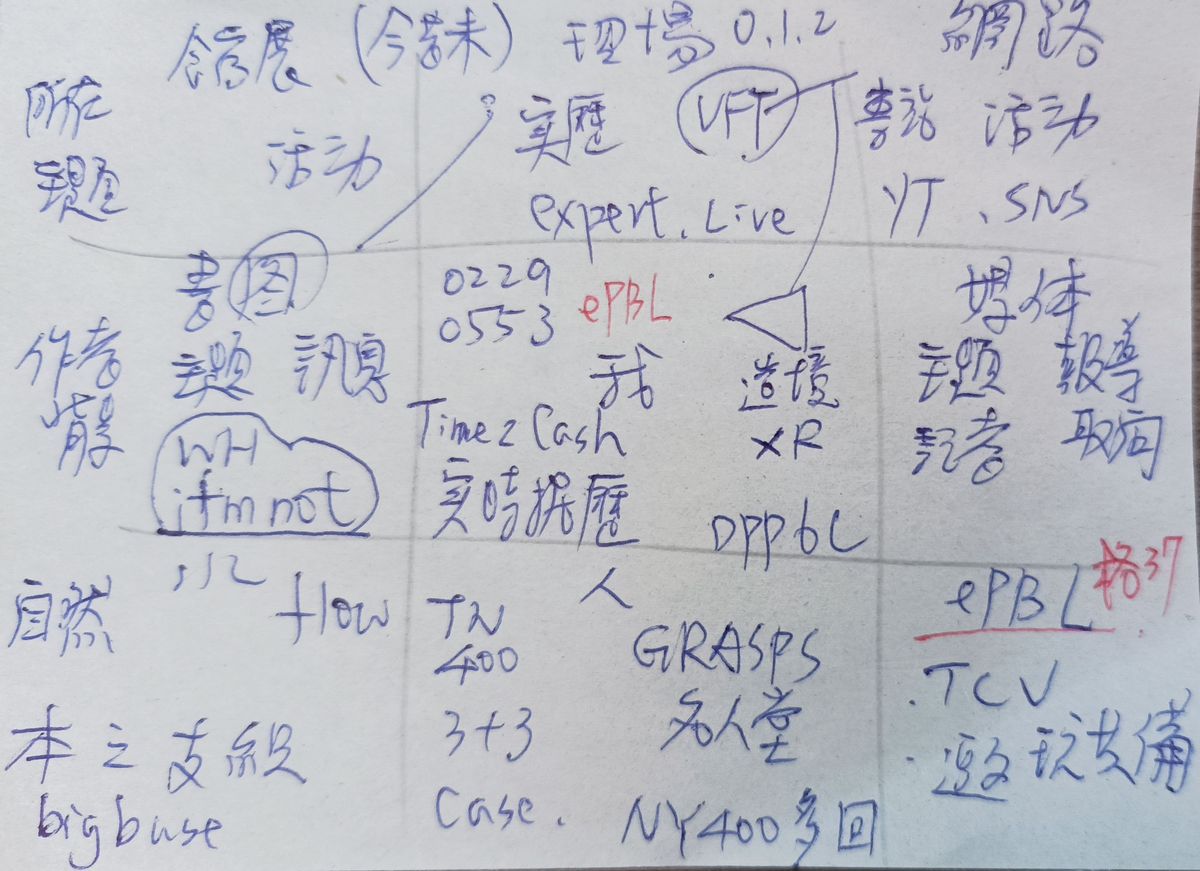 館展 (今昔未) 現場 0.1.2 網路
所在 主題 活动
实歷 VFT
expert. Live
書訪 活动
YT . SNS
作者 背景
書 图
主題 訊息
WH
ifm not
0229
0553 ePBL
我 造境
Time 2 Cash XR
实時据歷 DPPbL
媒体
主題 報導
記者 取向
自然 flow
本 之 支 組
big base
人
TN
400
3+3
Case.
GRASPS
名人堂
NY400多回
ePBL 格37
.TCV
.邀玩共備